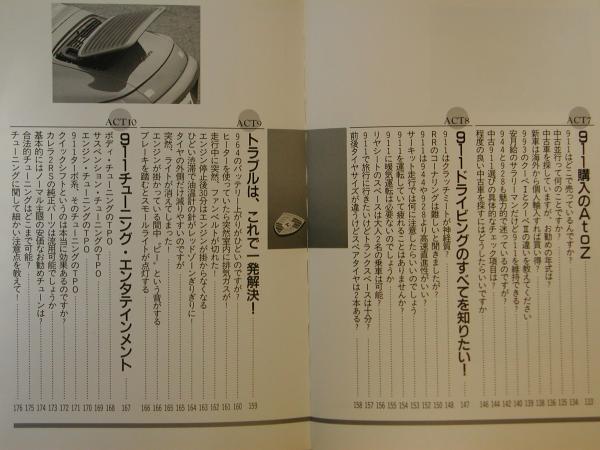 ACT7
911購入のAtoZ 133
911はどこで売っているんですか? 134
中古並行って何のことですか? 135
中古車を探しています。お勧めの年式は? 136
新車は海外から個人輸入すれば買い得? 138
993のクーペⅠとクーペⅡの違いを教えてください 139
安月給のサラリーマンだけど911を維持できる? 140
944と928も魅力的で迷っているのですが? 141
中古911選びの具体的なチェック項目は? 144
程度の良い中古車を探すにはどうしたらいいですか 146
ACT8
911ドライビングのすべてを知りたい! 147
911はクラッチミートが神経質? 148
RRのコーナリングは難しいと聞きましたが? 150
911は944や928より高速直進性がいい? 152
サーキット走行では何に注意したらいいのでしょう 153
911を運転していて疲れることはありませんか? 154
911に暖気運転は必要ないのでしょうか 155
リヤシートのスペースは大人2名の乗車は可能? 156
911で旅行に行きたいけどトランクスペースは十分? 157
前後タイヤサイズが違うけどスペアタイヤは2本ある? 158
ACT9
トラブルは、これで一発解決! 159
964のバッテリー上がりがひどいのですが? 160
ヒーターを使っていたら突然室内に排気ガスが! 161
走行中に突然、ファンベルトが切れた! 162
エンジン停止後30分はエンジンが掛からなくなる 163
ひどい渋滞で油温計の針がレッドゾーンぎりぎりに! 164
タイヤの外側だけ減りやすいのですが 165
突然、ライトが消えてしまった 165
エンジンが掛かっている間中、"ピー"という音がする 166
ブレーキを踏むとスモールライトが点灯する 166
ACT10
911チューニング・エンタテインメント 167
ボディ・チューニングのTPO 168
サスペンション・チューニングのTPO 169
エンジン・チューニングのTPO 170
911ターボ系、そのチューニングのTPO 171
クイックシフトというのは本当に効果あるのですか? 172
カレラ2RSの純正パーツは流用可能でしょうか 173
基本的にはノーマル主眼の安価なお勧めチューンは? 174
合法的チューニングはどこまで可能? 175
チューニングに関して細かい注意点を教えて! 176